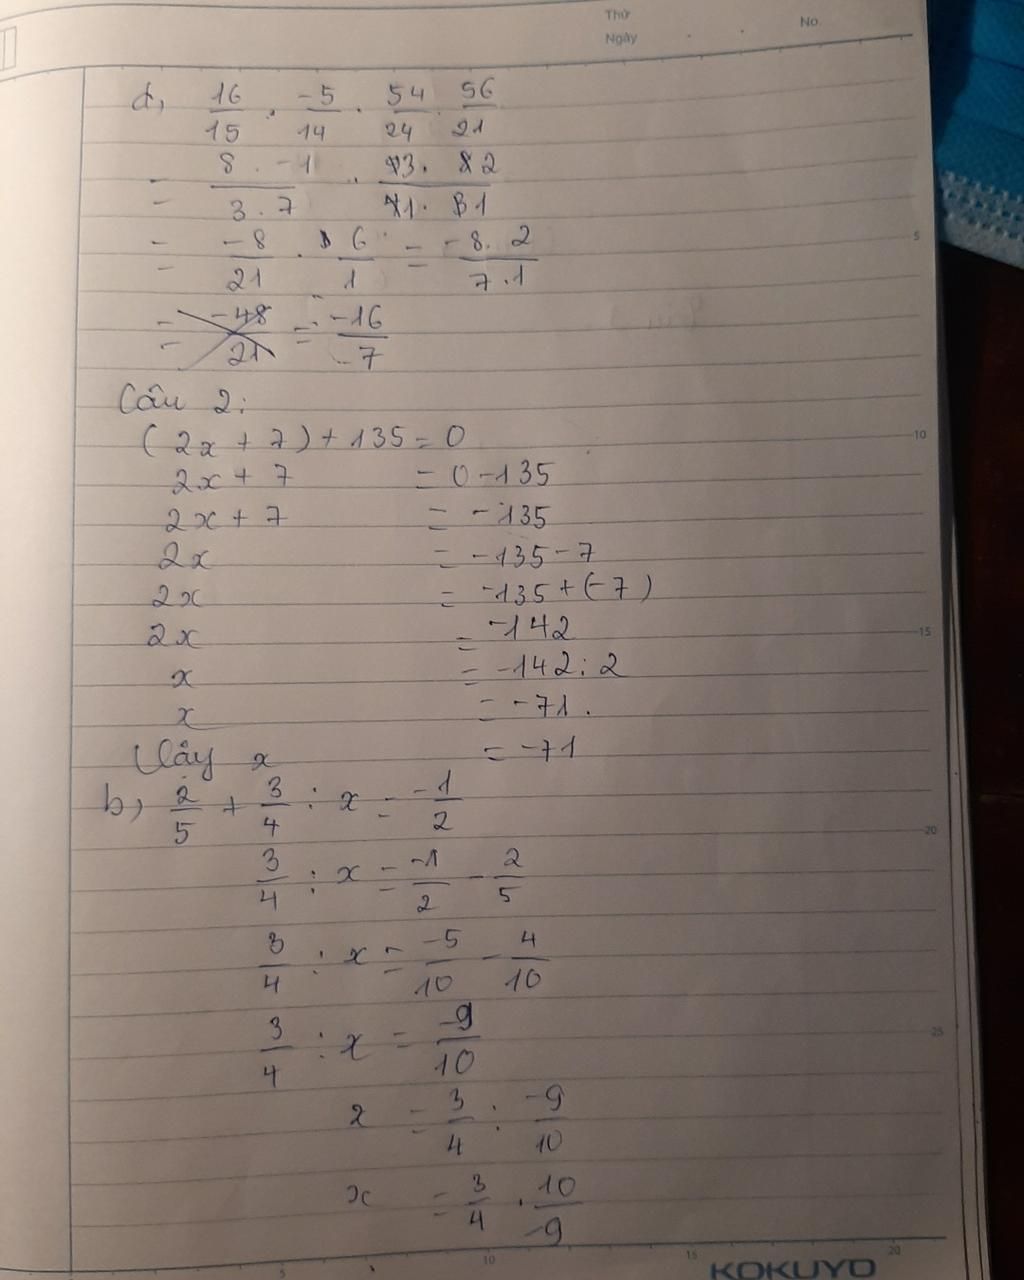 Thứ
Ngày . . No.
d, 16/15 . -5/14 . 54/24 . 56/21
= 8 . -1/3 . 7 . 3 . 2/1 . 1
= -8/21 . 6/1 = -8 . 2/7 . 1
= -48/21 = -16/7
Câu 2:
(2x + 7) + 135 = 0
2x + 7 = 0 - 135
2x + 7 = -135
2x = -135 - 7
2x = -135 + (-7)
2x = -142
x = -142 : 2
x = -71.
Vậy x = -71
b, 2/5 + 3/4 : x = -1/2
3/4 : x = -1/2 - 2/5
3/4 : x = -5/10 - 4/10
3/4 : x = -9/10
x = 3/4 : -9/10
x = 3/4 . 10/-9
5
10
15
20
25
5 10 15 20
KOKUYO